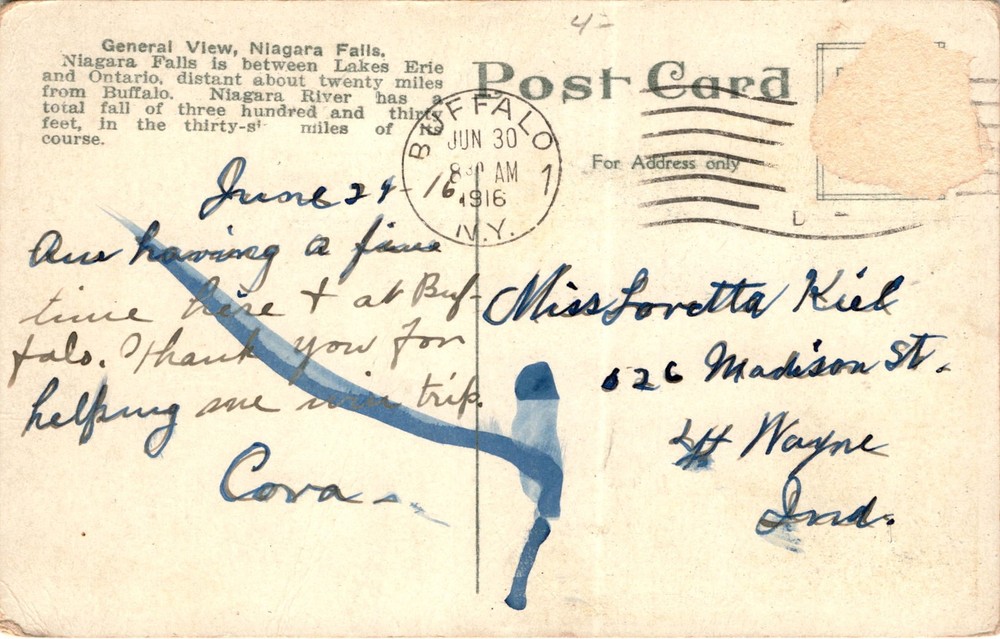 4-
General View, Niagara Falls.
Niagara Falls is between Lakes Erie
and Ontario, distant about twenty miles
from Buffalo. Niagara River has a
total fall of three hundred and thirty
feet, in the thirty-si miles of its
course.
Post Card
For Address only
BUFFALO 1
JUN 30
8 30 AM
1916
N.Y.
June 29-16
Am having a fine
time here + at Buf-
falo. Thank you for
helping me win trip.
Cora-
Miss Loretta Kiel
626 Madison St.
Ft Wayne
Ind.